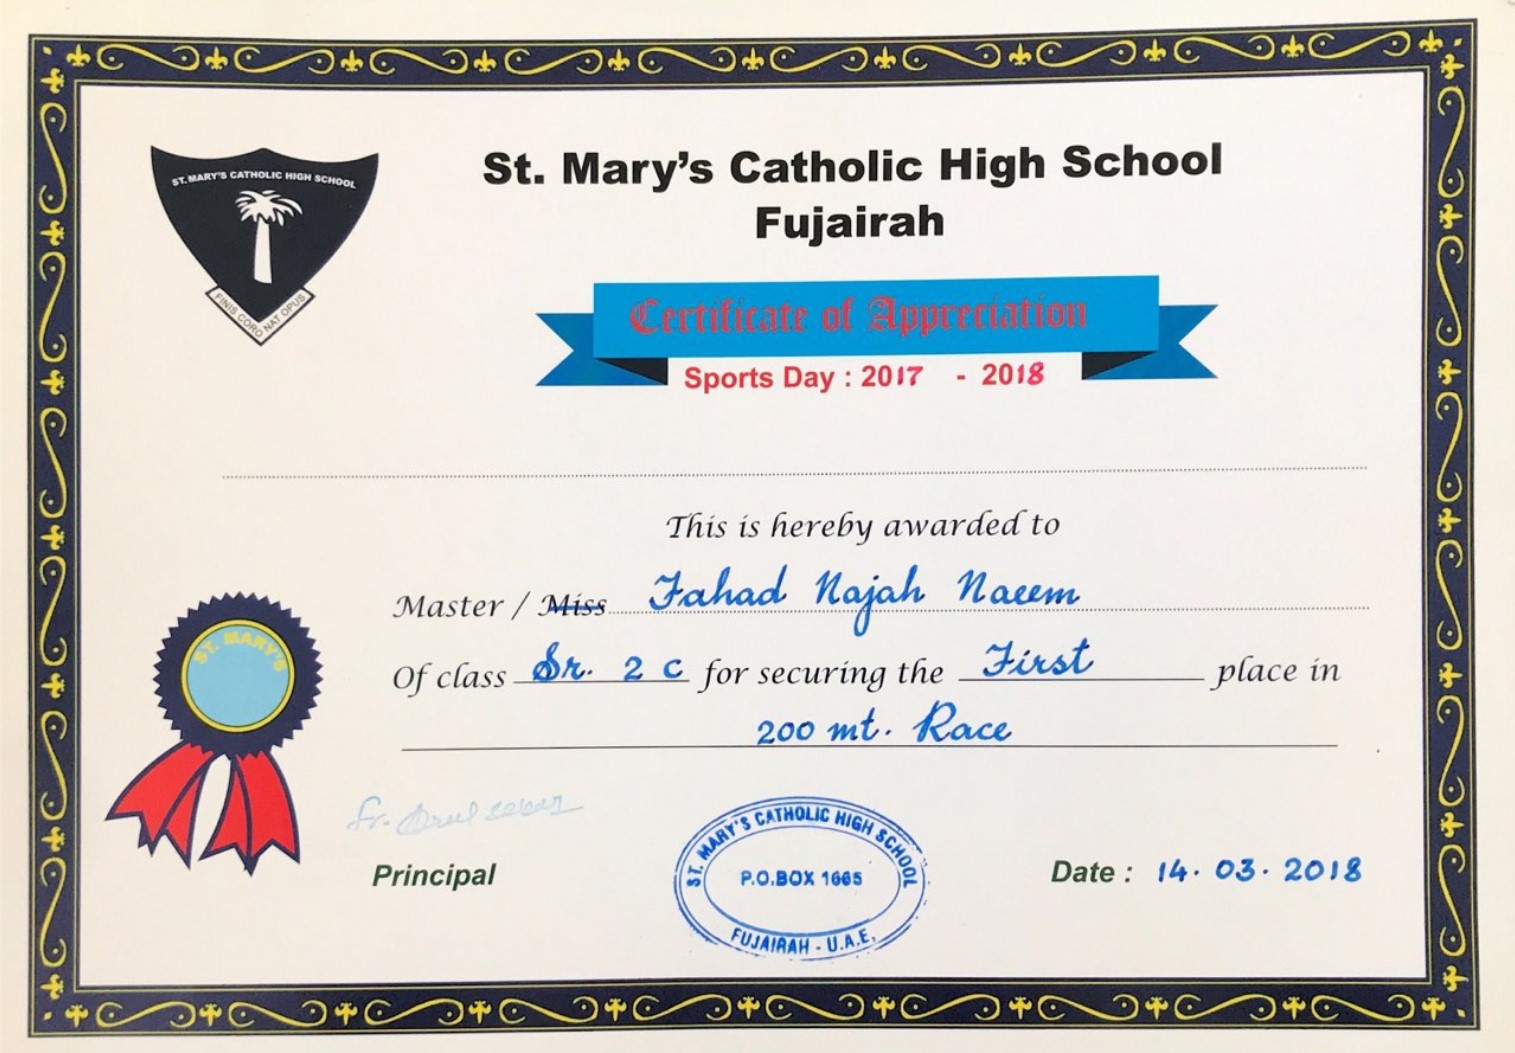 ST. MARY'S CATHOLIC HIGH SCHOOL
FINIS CORO NAT OPUS
St. Mary's Catholic High School
Fujairah
Certificate of Appreciation
Sports Day : 2017 - 2018
This is hereby awarded to
Master / Miss Fahad Najah Naeem
Of class Sr. 2 C for securing the First place in
200 mt. Race
ST. MARY'S
Fr.
Principal
ST. MARY'S CATHOLIC HIGH SCHOOL
P.O.BOX 1665
FUJAIRAH - U.A.E.
Date : 14. 03. 2018